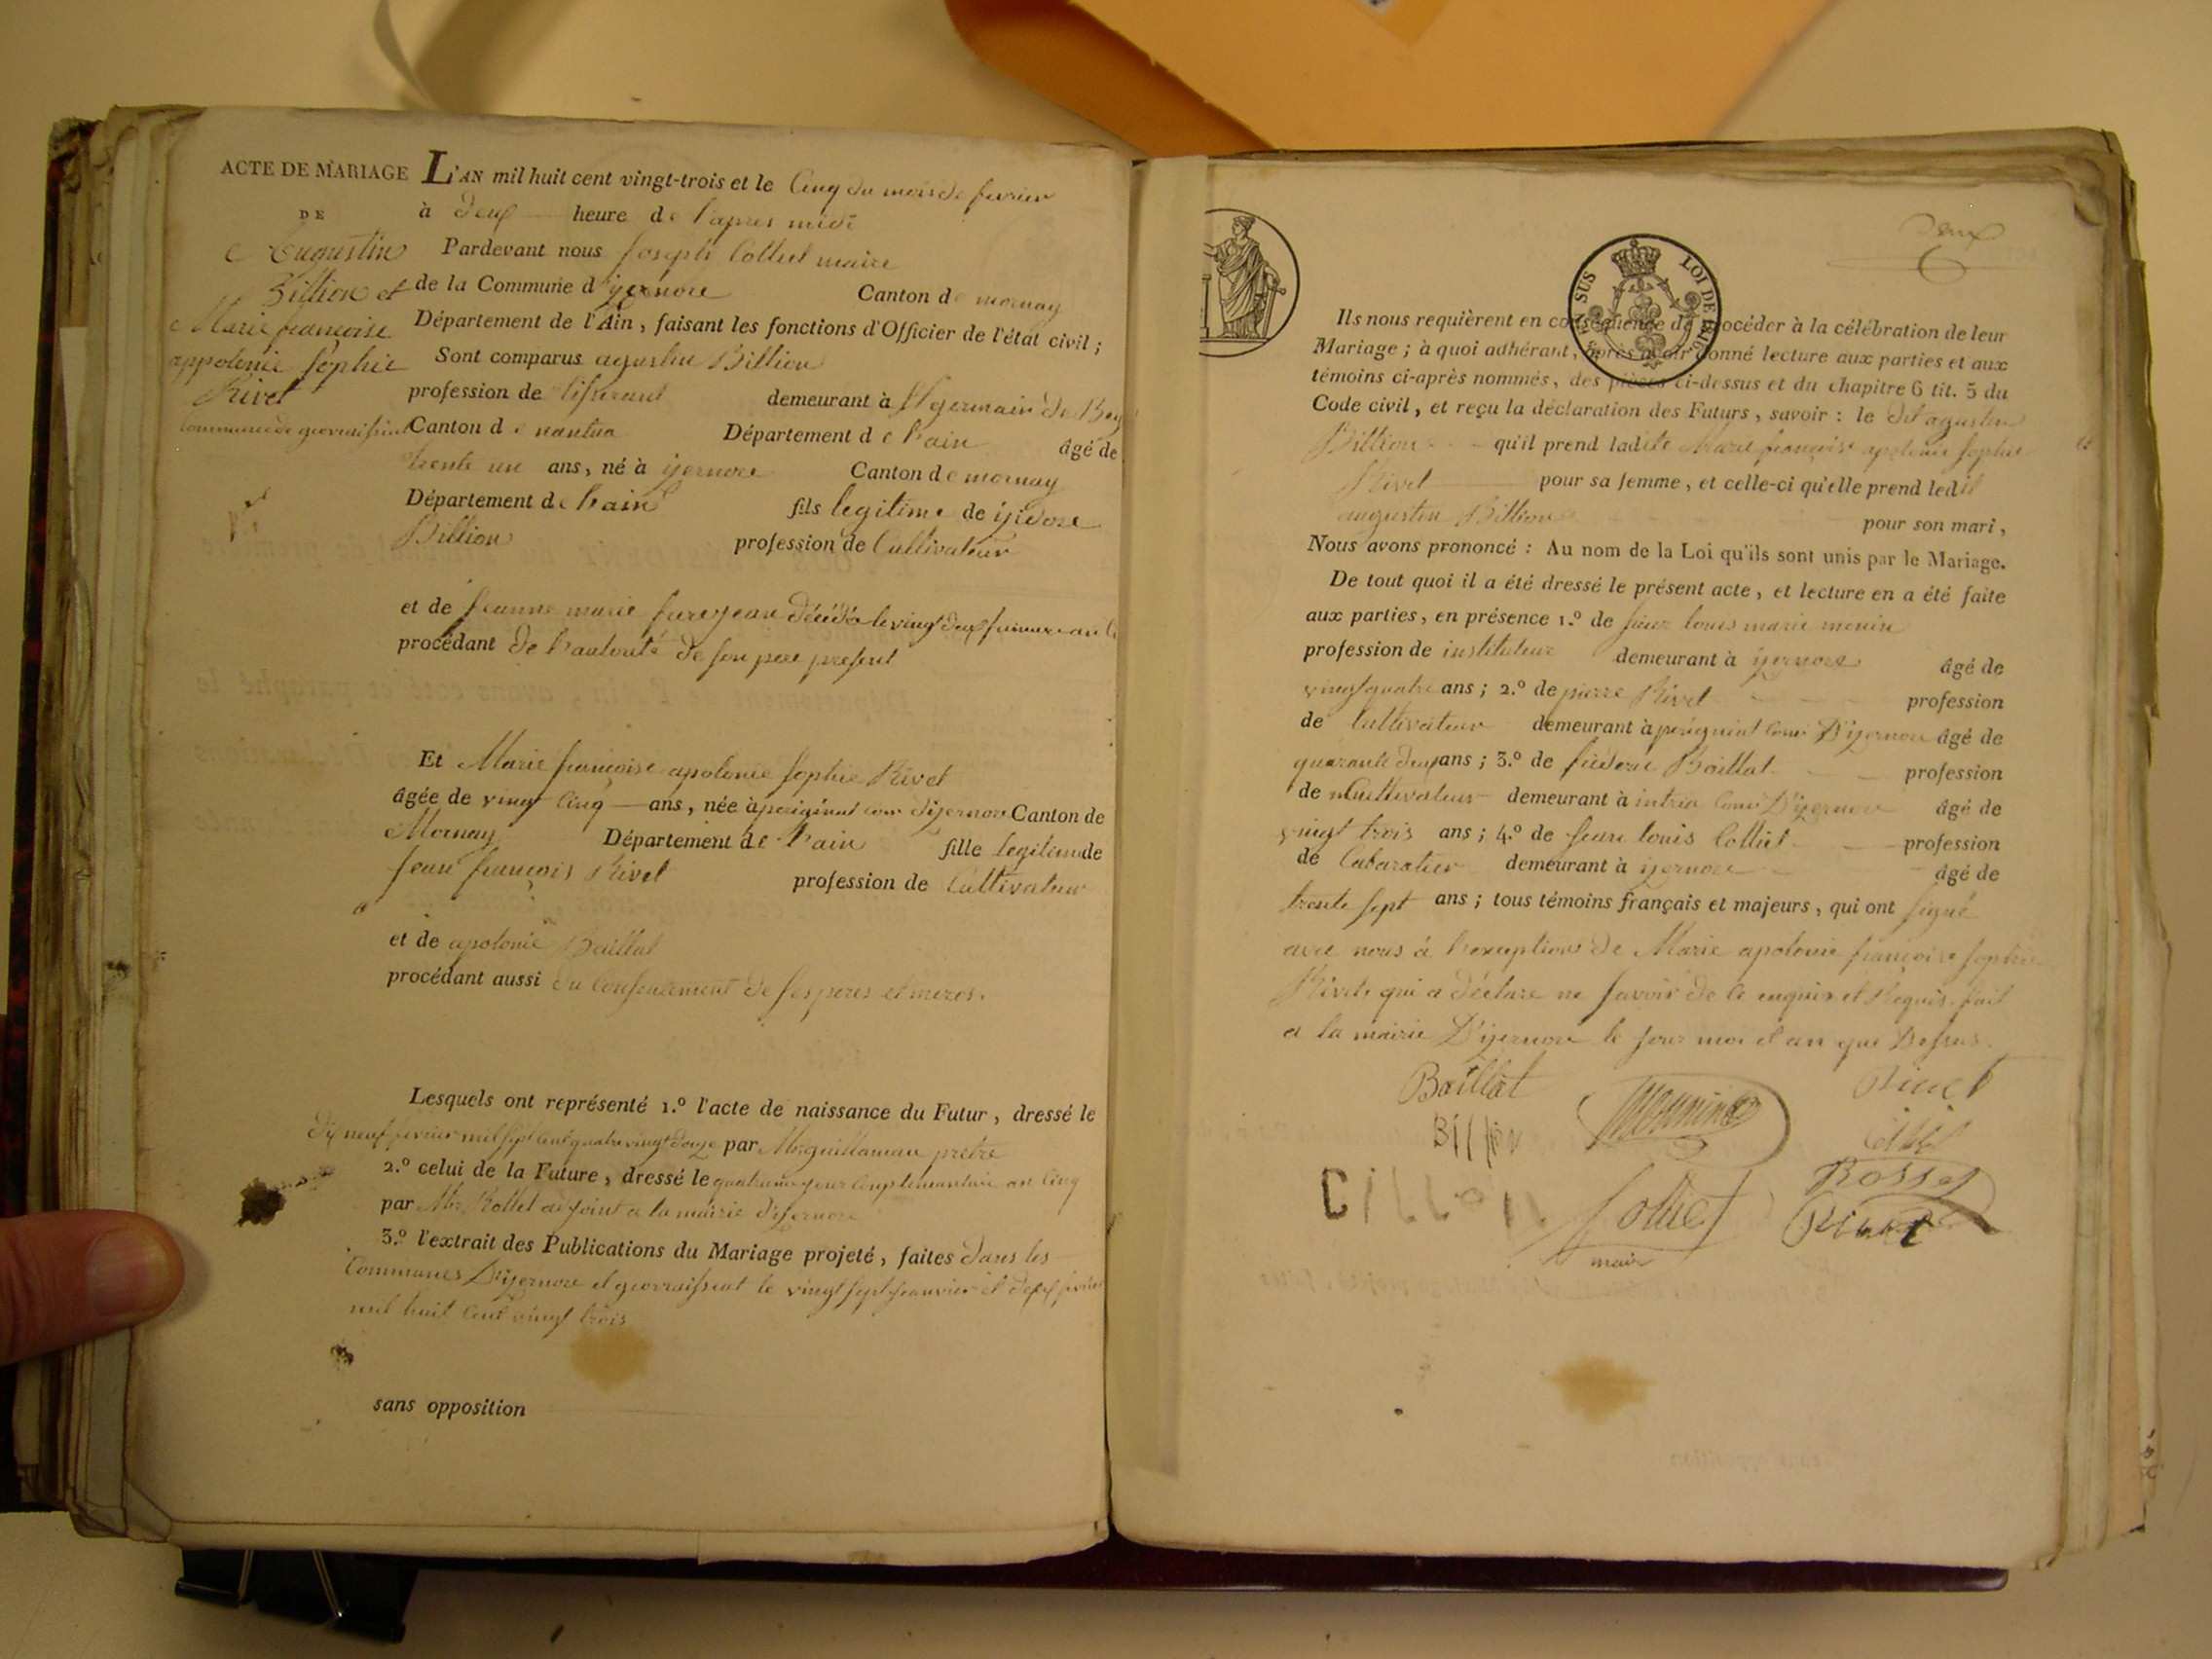 ACTE DE MARIAGE
DE
Augustin
Billion et
Marie françoise
appolonie Sophie
Rivet
L'AN mil huit cent vingt-trois et le Cinq du mois de fevrier
à deux heure de l'apres midi
Pardevant nous Joseph Colliet maire
de la Commune d'yzernore Canton de mornay
Département de l'Ain, faisant les fonctions d'Officier de l'état civil;
Sont comparus agustin Billion
profession de tisserand demeurant à St germain de
Canton de nantua Département de l'ain âgé de
trente un ans, né à yzernore Canton de mornay
Département de l'ain fils legitime de isidore
Billion profession de Cultivateur
et de Jeanne marie décédé le vingt deux frimaire an
procédant de l'autorité de son pere present
Et Marie françoise apolonie Sophie Rivet
âgée de vingt Cinq ans, née à perignat com d'yzernore Canton de
Mornay Département de l'ain fille legitime de
Jean françois Rivet profession de Cultivateur
et de apolonie Baillat
procédant aussi du Consentement de ses peres et meres.
Lesquels ont représenté 1.º l'acte de naissance du Futur, dressé le
dix neuf fevrier mil sept cent quatre vingt douze par Mr. prêtre
2.º celui de la Future, dressé le quatrieme jour Complementaire an Cinq
par Mr. adjoint a la mairie d'yzernore
3.º l'extrait des Publications du Mariage projeté, faites dans les
Communes D'yzernore et geovraissiat le vingt sept janvier et deux fevrier
mil huit Cent vingt trois
sans opposition
deux
6
EN SUS LOI DE 1816
Ils nous requièrent en conséquence de procéder à la célébration de leur
Mariage; à quoi adhérant, après avoir donné lecture aux parties et aux
témoins ci-après nommés, des pièces ci-dessus et du chapitre 6 tit. 5 du
Code civil, et reçu la déclaration des Futurs, savoir: le dit agustin
Billion qu'il prend ladite Marie françoise apolonie Sophie
Rivet pour sa femme, et celle-ci qu'elle prend ledit
augustin Billion pour son mari,
Nous avons prononcé: Au nom de la Loi qu'ils sont unis par le Mariage.
De tout quoi il a été dressé le présent acte, et lecture en a été faite
aux parties, en présence 1.º de louis marie
profession de instituteur demeurant à yzernore âgé de
vingt quatre ans; 2.º de pierre Rivet profession
de Cultivateur demeurant à perignat Com D'yzernore âgé de
quarante deux ans; 3.º de Baillat profession
de Cultivateur demeurant à intria Com D'yzernore âgé de
vingt trois ans; 4.º de Jean louis Colliet profession
de Cabaratier demeurant à yzernore âgé de
trente sept ans; tous témoins français et majeurs, qui ont signé
avec nous à l'exception de Marie apolonie françoise Sophie
Rivet, qui a déclare ne savoir de ce enquis et Requis. fait
a la mairie D'yzernore le jour moi et an que Dessus.
Baillat
Rivet
Billion
Colliet
Rosset
maire